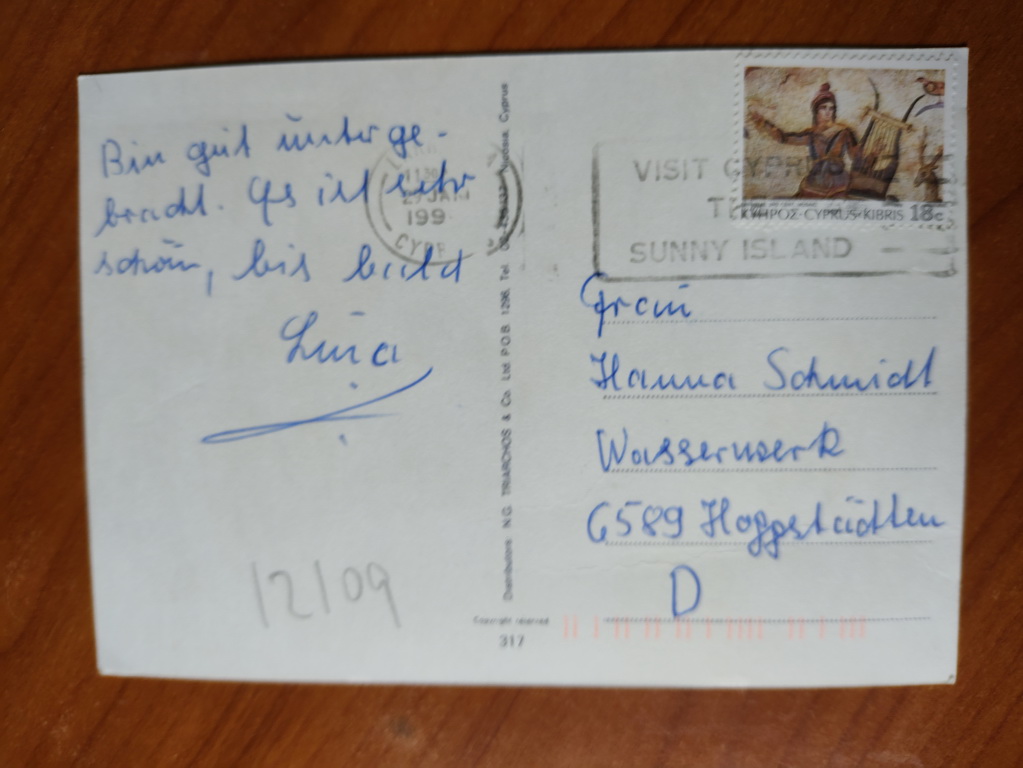 Bin gut unterge-
bracht. Es ist sehr
schön, bis bald
12/09
Distributors N.G. TRIARCHOS & Co. Ltd P.O.B. 1296, Tel. Nicosia, Cyprus
Copyright reserved
317
199
CYPR
VISIT CYPRUS
SUNNY ISLAND
ΚΥΠΡΟΣ·CYPRUS·KIBRIS 18c
Frau
Hanna Schmidt
Wasserwerk
6589 Hoppstädten
D